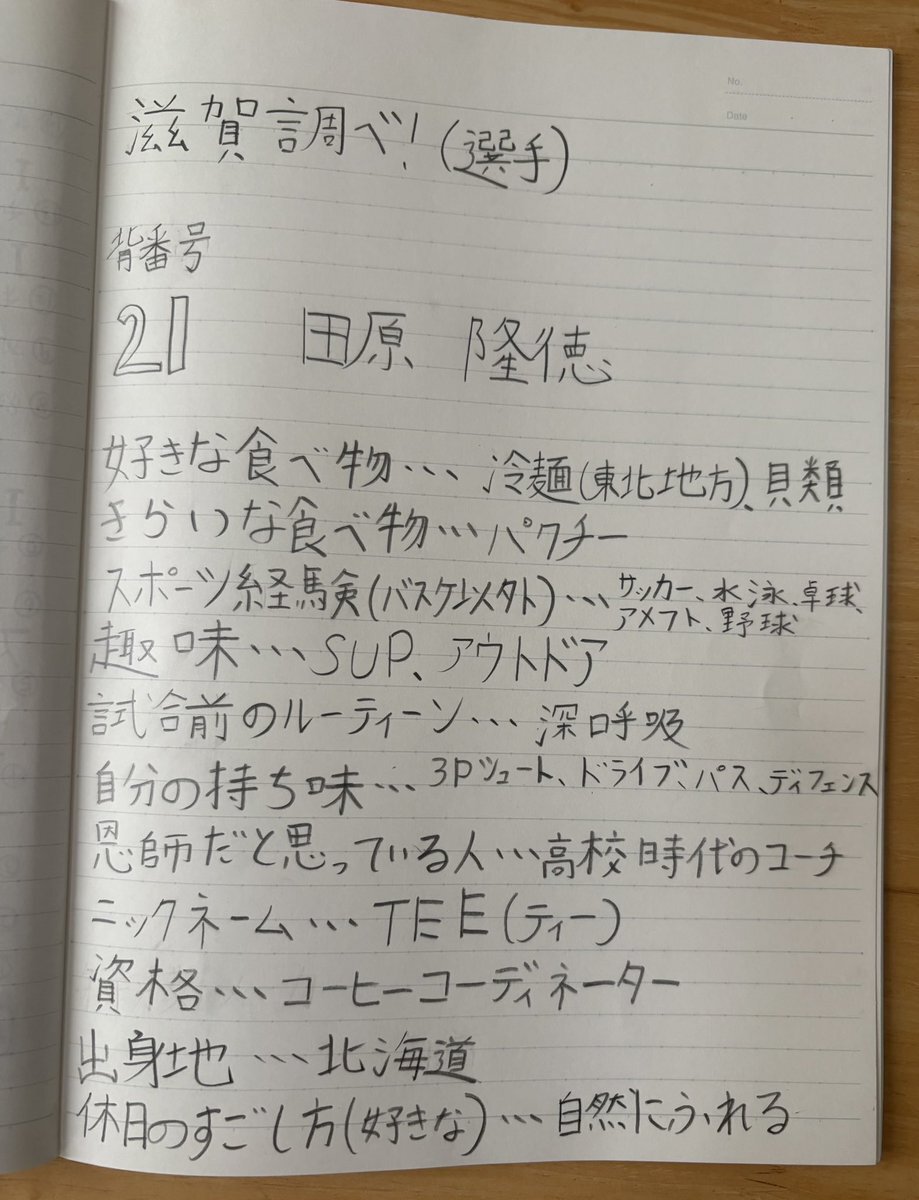 No.
Date
滋賀調べ!(選手)
背番号
21 田原 隆徳
好きな食べ物… 冷麺(東北地方)、貝類
きらいな食べ物…パクチー
スポーツ経験(バスケ以外)… サッカー、水泳、卓球、
アメフト、野球
趣味…SUP、アウトドア
試合前のルーティーン…深呼吸
自分の持ち味…3Pシュート、ドライブ、パス、ディフェンス
恩師だと思っている人…高校時代のコーチ
ニックネーム…TEE(ティー)
資格…コーヒーコーディネーター
出身地…北海道
休日のすごし方(好きな)…自然にふれる